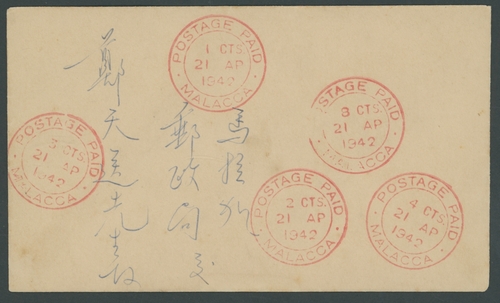 POSTAGE PAID
1 CTS.
21 AP
1942
MALACCA
POSTAGE PAID
8 CTS.
21 AP
1942
MALACCA
POSTAGE PAID
CTS.
21 AP
1942
MALACCA
POSTAGE PAID
2 CTS.
21 AP
1942
MALACCA
POSTAGE PAID
4 CTS.
21 AP
1942
MALACCA
馬拉加
郵政局交
鄭天送先生啟